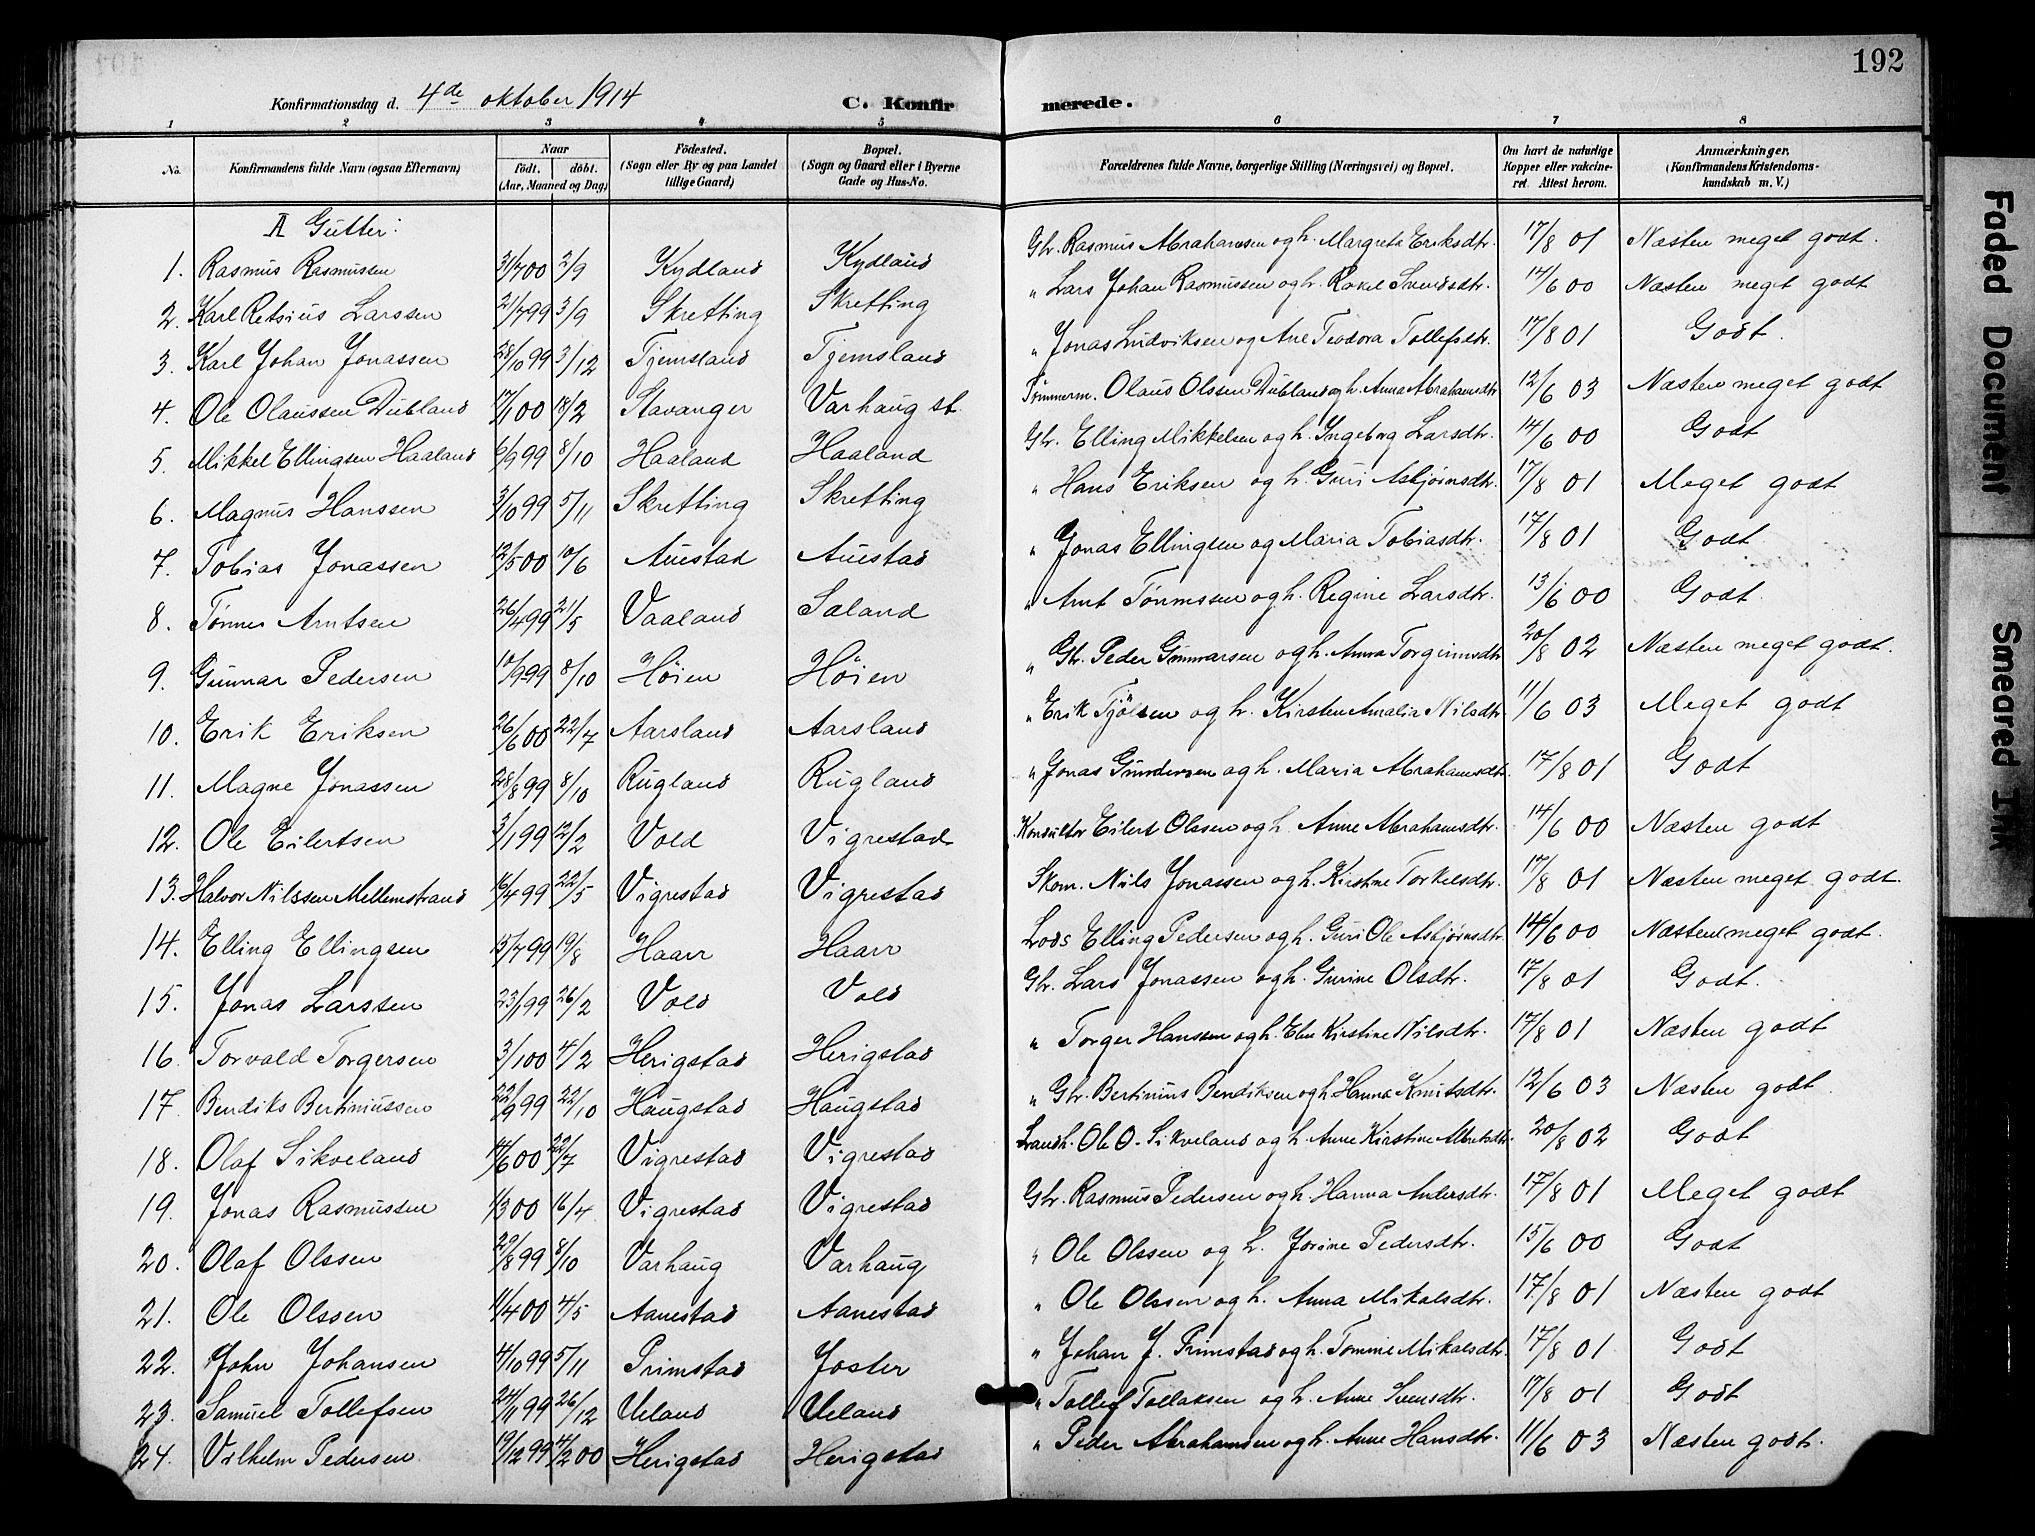 192
Konfirmationsdag d. 4de oktober 1914 C. Konfirmerede.
1 2 3 4 5 6 7 8
No. Konfirmandens fulde Navn (ogsaa Efternavn) Naar født. døbt. (Aar, Maaned og Dag) Fødested. (Sogn eller By og paa Landet tillige Gaard) Bopæl. (Sogn og Gaard eller i Byerne Gade og Hus-No. Forældrenes fulde Navne, borgerlige Stilling (Næringsvei) og Bopæl. Om havt de naturlige Kopper eller vakcineret Attest herom. Anmærkninger. (Konfirmandens Kristendomskundskab m. V.)
A Gutter:
1. Rasmus Rasmussen 31/7 00 2/9 Kydland Kydland Gbr. Rasmus Abrahamsen og h. Margreta Eriksdtr. 17/8 01 Næsten meget godt.
2. Karl Retsius Larssen 21/7 99 3/9 Skretting Skretting " Lars Johan Rasmussen og h. Rakel Svendsdtr. 14/6 00 Næsten meget godt
3. Karl Johan Jonassen 28/10 99 3/12 Tjemsland Tjemsland " Jonas Ludviksen og Ane Teodora Tollefsdtr. 17/8 01 Godt.
4. Ole Olaussen Dubland 17/1 00 18/2 Stavanger Varhaug st. Tømmerm. Olaus Olssen Dubland og h. Anna Abrahamsdtr 12/6 03 Næsten meget godt
5. Mikkel Ellingsen Haaland 6/9 99 8/10 Haaland Haaland Gbr. Elling Mikkelsen og h. Ingeborg Larsdtr. 14/6 00 Godt
6. Magnus Hanssen 3/10 99 5/11 Skretting Skretting " Hans Eriksen og h. Guri Asbjørnsdtr. 17/8 01 Meget godt
7. Tobias Jonassen 12/5 00 10/6 Auestad Auestad " Jonas Ellingsen og Maria Tobiasdtr. 17/8 01 Godt
8. Tønnes Arntsen 26/4 99 21/5 Vaaland Saland " Arnt Tønnssen og h. Regine Larsdtr. 13/6 00 Godt.
9. Gunnar Pedersen 10/9 99 8/10 Høien Höien " Gbr. Peder Gunnarsen og h. Anna Torgrimsdtr 20/8 02 Næsten meget godt.
10. Erik Eriksen 26/6 00 22/7 Aarsland Aarsland " Erik Tjölsen og h. Kirsten Amalia Nilsdtr. 11/6 03 Meget godt
11. Magne Jonassen 28/8 99 8/10 Rugland Rugland " Jonas Gundersen og h. Maria Abrahamsdtr. 17/8 01 Godt
12. Ole Eilertsen 3/1 99 12/2 Vold Vigrestad Eilert Olssen og h. Anne Abrahamsdtr. 14/6 00 Næsten godt
13. Halvor Nilssen Mellemstrand 16/4 99 22/5 Vigrestad Vigrestad Skom. Nils Jonassen og h. Kirstine Torkelsdtr. 17/8 01 Næsten meget godt.
14. Elling Ellingsen 15/7 99 19/8 Haarr Haarr Lods Elling Pedersen og h. Guri Ole Asbjørnsdtr. 14/6 00 Næsten meget godt.
15. Jonas Larssen 23/1 99 26/2 Vold Vold Gbr. Lars Jonassen og h. Gurine Olsdtr. 17/8 01 Godt.
16. Torvald Torgersen 3/1 00 4/2 Herigstad Herigstad " Torger Hanssen og h. Elen Kirstine Nilsdtr. 17/8 01 Næsten godt
17. Bendiks Bertiniussen 22/9 99 22/10 Haugstad Haugstad " Gbr. Bertinius Bendiksen og h. Hanna Knutsdtr. 12/6 03 Næsten godt
18. Olaf Sikveland 14/6 00 22/7 Vigrestad Vigrestad Landh. Ole O. Sikveland og h. Anne Kirstine Albretsdtr. 20/8 02 Godt
19. Jonas Rasmussen 1/3 00 16/4 Vigrestad Vigrestad Gbr. Rasmus Pedersen og h. Hanna Andersdtr. 17/8 01 Meget godt
20. Olaf Olssen 29/8 99 8/10 Varhaug Varhaug " Ole Olssen og h. Jorine Pedersdtr. 15/6 00 Godt
21. Ole Olssen 11/4 00 4/5 Aanestad Aanestad " Ole Olssen og h. Anna Mikalsdtr. 17/8 01 Næsten godt
22. John Johansen 4/10 99 5/11 Primstad Joster " Johan J. Primstad og h. Tomine Mikalsdtr. 17/8 01 Godt
23. Samuel Tollefsen 24/11 99 26/12 Ueland Ueland " Tollef Tollaksen og h. Anne Svensdtr. 17/8 01 Godt
24. Vilhelm Pedersen 19/12 99 4/2 00 Herigstad Herigstad " Peder Abrahamsen og h. Anne Hansdtr. 11/6 03 Næsten godt.
Faded Document
Smeared Ink